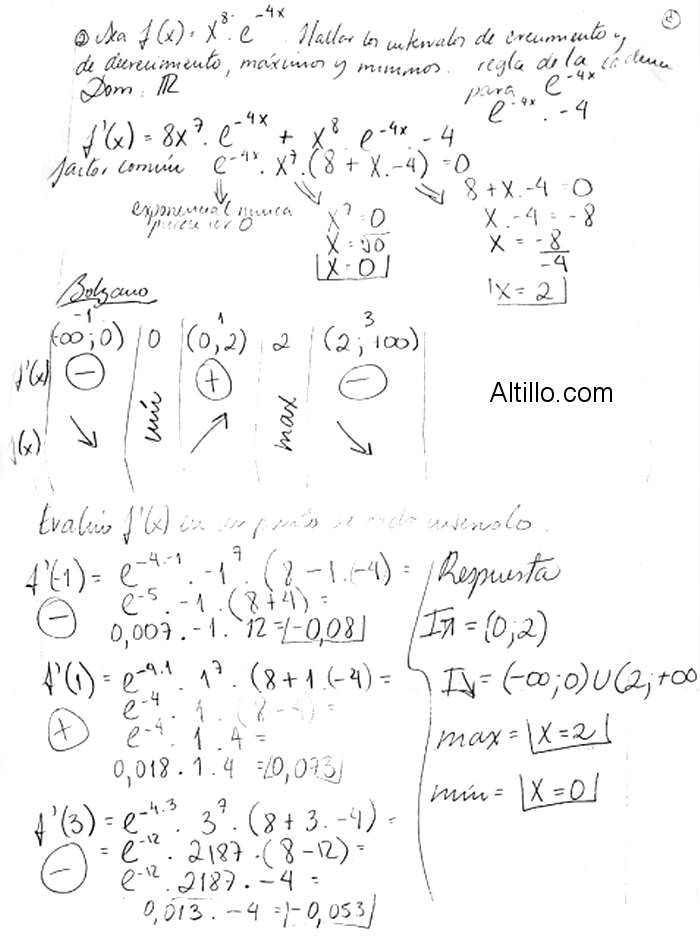 ②
② Sea f(x) = x⁸ · e⁻⁴ˣ. Hallar los intervalos de crecimiento y
de decrecimiento, máximos y mínimos. regla de la cadena
Dom: ℝ
para e⁻⁴ˣ
e⁻⁴ˣ · -4
f'(x) = 8x⁷ · e⁻⁴ˣ + x⁸ · e⁻⁴ˣ · -4
factor común e⁻⁴ˣ · x⁷ · (8 + x · -4) = 0
exponencial nunca
puede ser 0
x⁷ = 0
x = √0
x = 0
8 + x · -4 = 0
x · -4 = -8
x = -8/-4
x = 2
Bolzano
-1 1 3
(-∞; 0) 0 (0, 2) 2 (2; +∞)
f'(x) - + -
f(x) ↘ mín ↗ max ↘
Altillo.com
Evalúo f'(x) en un punto de cada intervalo.
f'(-1) = e^(-4·-1) · -1⁷ · (8 - 1 · (-4) =
- e⁻⁵ · -1 · (8+4) =
0,007 · -1 · 12 = -0,08
f'(1) = e^(-4·1) · 1⁷ · (8 + 1 · (-4) =
e⁻⁴ · 1 · (8 - 4) =
+ e⁻⁴ · 1 · 4 =
0,018 · 1 · 4 = 0,073
f'(3) = e^(-4·3) · 3⁷ · (8 + 3 · -4) =
= e⁻¹² · 2187 · (8 - 12) =
- e⁻¹² · 2187 · -4 =
0,013 · -4 = -0,053
Respuesta
I↗ = (0; 2)
I↘ = (-∞; 0) U (2; +∞
max = x = 2
mín = x = 0